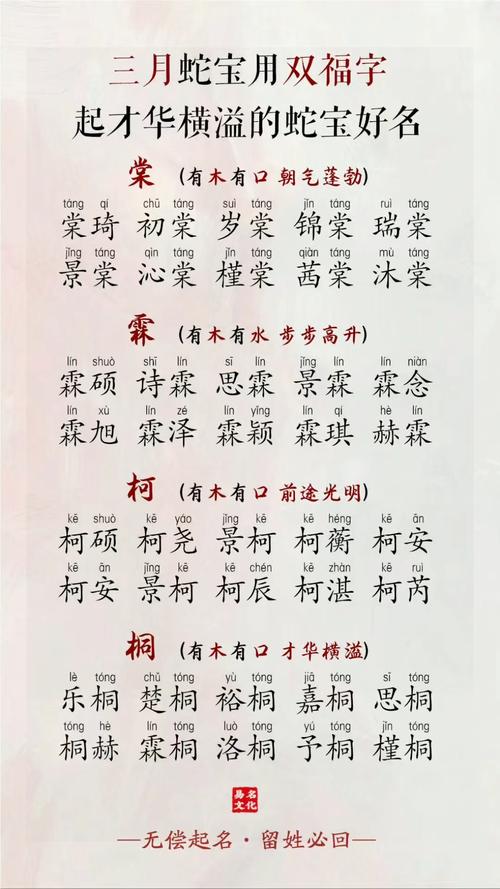 三月蛇宝用双福字
起才华横溢的蛇宝好名
棠 (有木有口 朝气蓬勃)
táng qí chū táng suì táng jǐn táng ruì táng
棠琦 初棠 岁棠 锦棠 瑞棠
jǐng táng qìn táng jǐn táng qiàn táng mù táng
景棠 沁棠 槿棠 茜棠 沐棠
霖 (有木有水 步步高升)
lín shuò shī lín sī lín jǐng lín lín niàn
霖硕 诗霖 思霖 景霖 霖念
lín xù lín zé lín yǐng lín qí hè lín
霖旭 霖泽 霖颖 霖琪 赫霖
柯 (有木有口 前途光明)
kē shuò kē yáo jǐng kē kē héng kē ān
柯硕 柯尧 景柯 柯蘅 柯安
kē ān jǐng kē kē chén kē zhàn kē ruì
柯安 景柯 柯辰 柯湛 柯芮
桐 (有木有口 才华横溢)
lè tóng chǔ tóng yù tóng jiā tóng sī tóng
乐桐 楚桐 裕桐 嘉桐 思桐
tóng hè lín tóng luò tóng yú tóng jǐn tóng
桐赫 霖桐 洛桐 予桐 槿桐
易名
文化
—无偿起名·留姓必回—